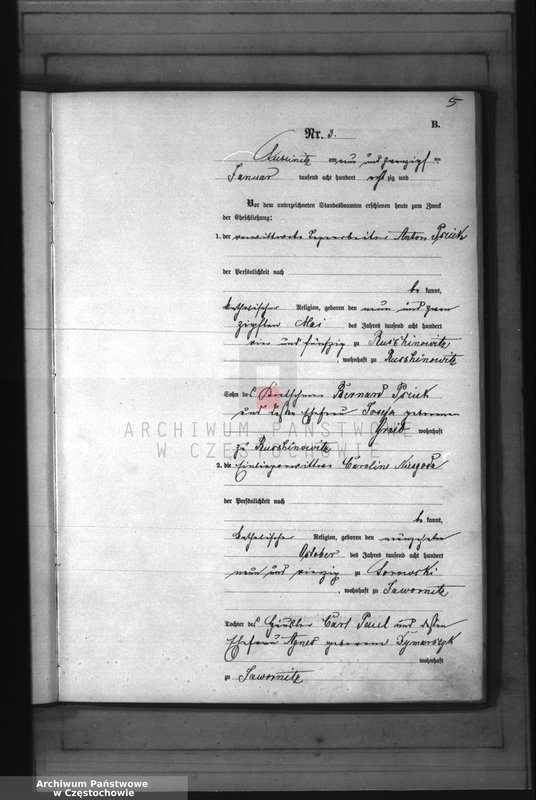 5
B.
Nr. 3.
Lusinitz am neun und zwanzigsten
Januar tausend acht hundert acht zig und
Vor dem unterzeichneten Standesbeamten erschienen heute zum Zweck
der Eheschließung:
1. der verwittwete Tagearbeiter Anton
der Persönlichkeit nach
be kannt,
katholischer Religion, geboren den neun und zwan
zigsten Mai des Jahres tausend acht hundert
vier und fünfzig zu Russhinowitz
, wohnhaft zu Russhinowitz
Sohn des Bernard
und dessen Ehefrau Josefa geborenen
wohnhaft
zu Russhinowitz
2. die Einliegerwittwe Caroline
der Persönlichkeit nach
be kannt,
katholischer Religion, geboren den neunzehnten
October des Jahres tausend acht hundert
neun und vierzig zu
, wohnhaft zu Jawornitz
Tochter des Häusler Carl Paul und dessen
Ehefrau Agnes geborene
wohnhaft
zu Jawornitz
ARCHIWUM PAŃSTWOWE
W CZĘSTOCHOWIE
Archiwum Państwowe
w Częstochowie